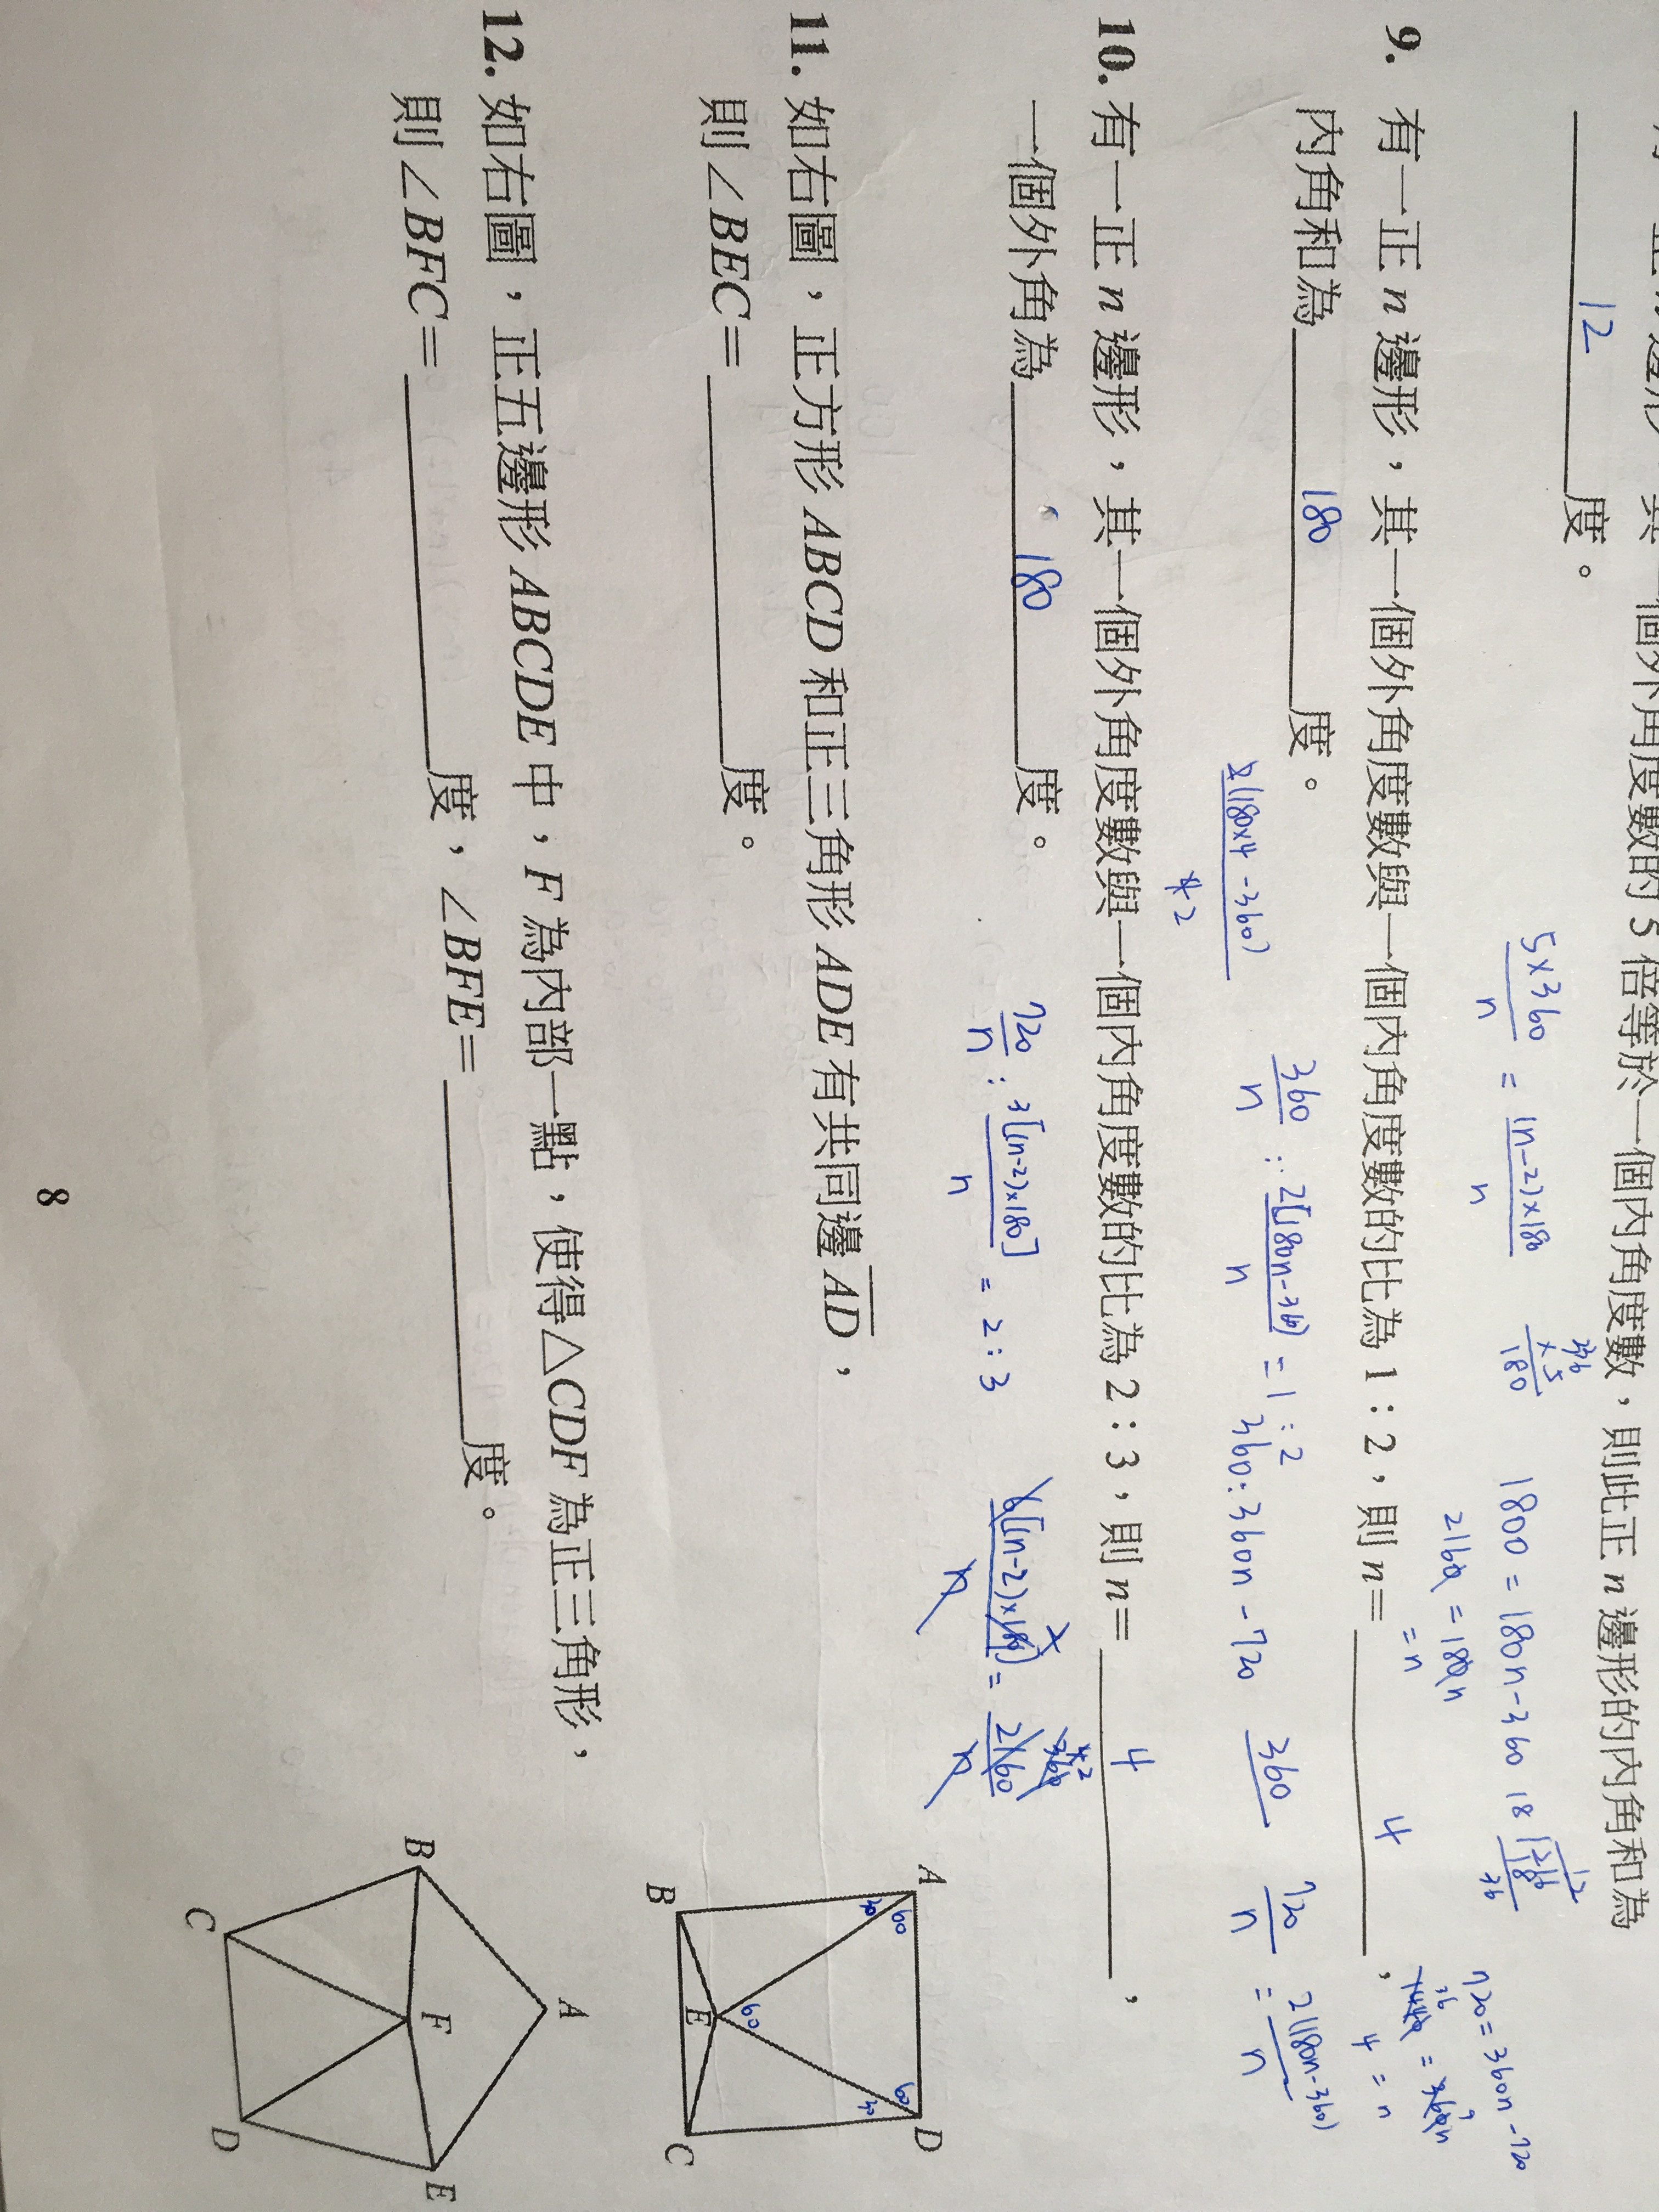 個外角度數的 5 倍等於一個內角度數,則此正 n 邊形的內角和為
12 度。
5×360/n = (n-2)×180/n
1800 = 180n-360
2160 = 180n
= n
9. 有一正 n 邊形,其一個外角度數與一個內角度數的比為 1:2,則 n= 4 ,
內角和為 180 度。
360/n : 2[180n-360]/n = 1:2
360:360n-720
360
720/n = 2(180n-360)/n
720=360n-720
4 = n
2(180×4-360)
10. 有一正 n 邊形,其一個外角度數與一個內角度數的比為 2:3,則 n= 4 ,
一個外角為 180 度。
720/n : 3[(n-2)×180]/n = 2:3
6[(n-2)×180]/n = 2160/n
11. 如右圖,正方形 ABCD 和正三角形 ADE 有共同邊 AD,
則∠BEC= 度。
A 60 60 D
30 30
60
B E C
12. 如右圖,正五邊形 ABCDE 中,F 為內部一點,使得△CDF 為正三角形,
則∠BFC= 度,∠BFE= 度。
A
B F E
C D
8